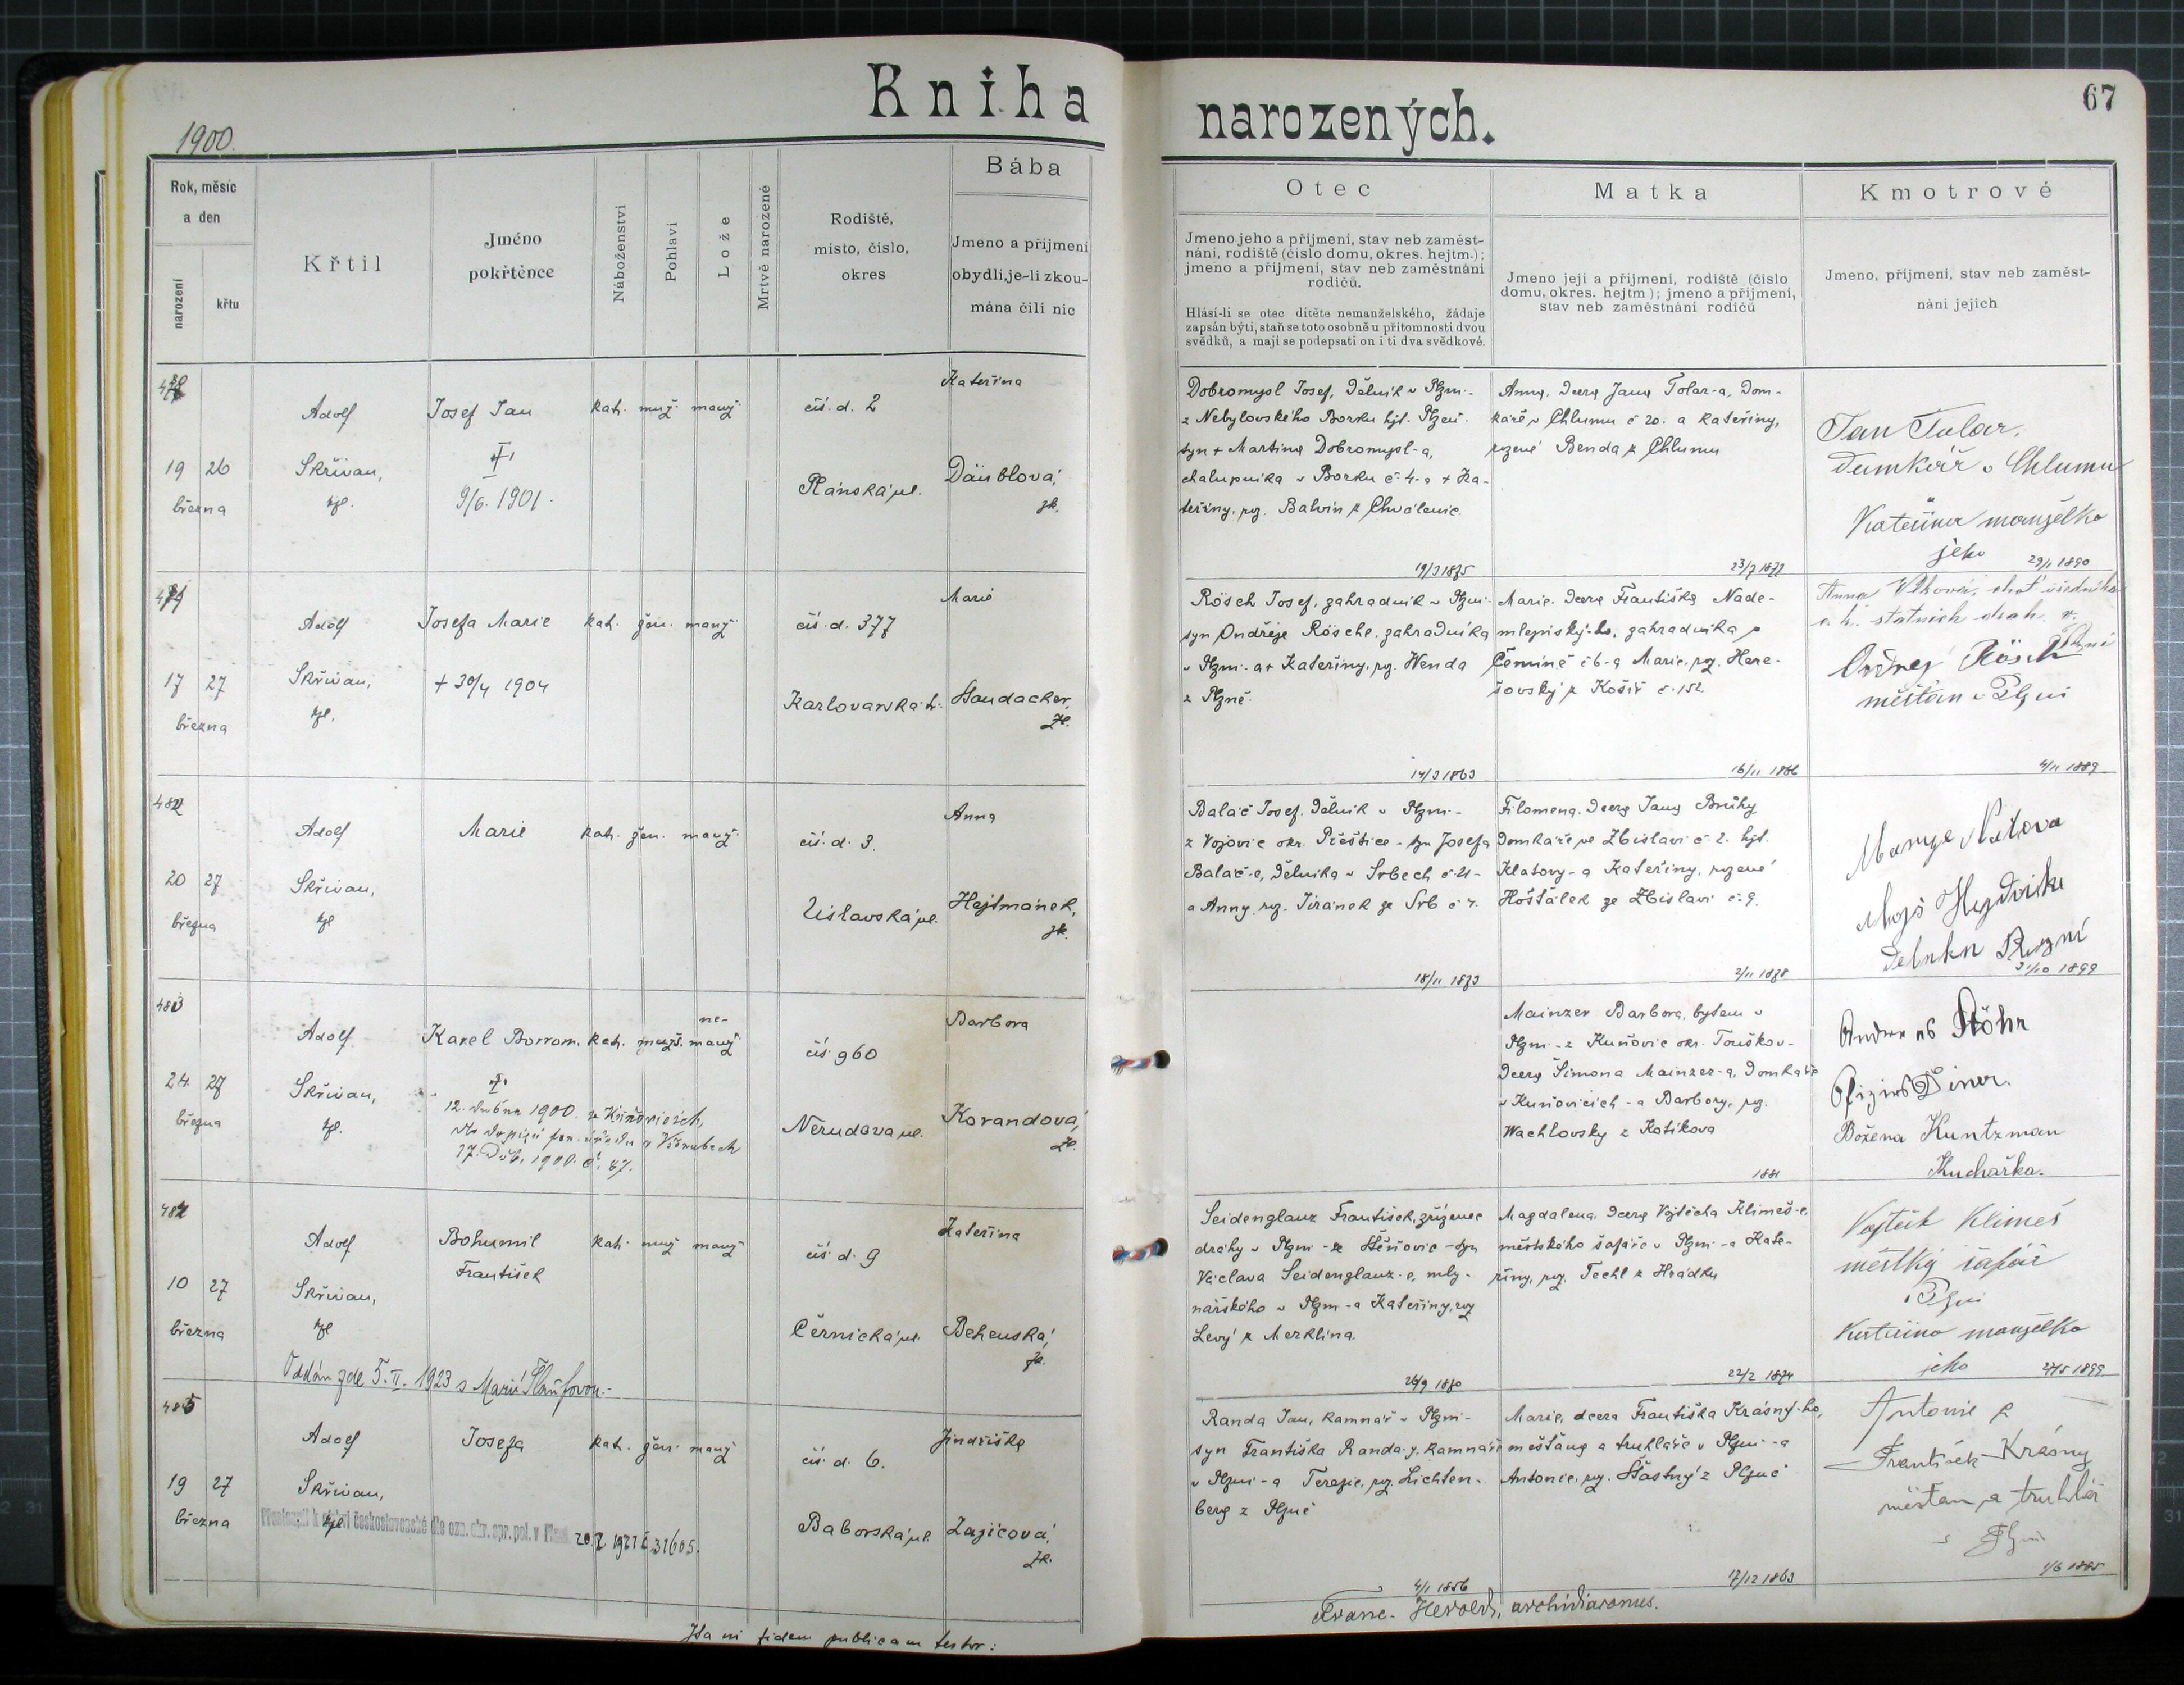 Kniha narozených.
67
1900.
Rok, měsíc a den
narození
křtu
Křtil
Jméno pokřtěnce
Náboženství
Pohlaví
Lože
Mrtvě narozené
Rodiště, místo, číslo, okres
Bába
Jmeno a příjmení obydlí, je-li zkoumána čili nic
Otec
Jmeno jeho a příjmení, stav neb zaměst-
nání, rodiště (číslo domu, okres. hejtm.);
jmeno a příjmení, stav neb zaměstnání
rodičů.
Hlásí-li se otec dítěte nemanželského, žádaje
zapsán býti, staň se toto osobně u přítomnosti dvou
svědků, a mají se podepsati on i ti dva svědkové.
Matka
Jmeno její a příjmení, rodiště (číslo
domu, okres. hejtm.); jmeno a příjmení,
stav neb zaměstnání rodičů
Kmotrové
Jmeno, příjmení, stav neb zaměst-
nání jejich
19 26
března
Adolf
Skřivan,
kpl.
Josef Jan
9/6. 1901.
kat. muž. manž.
čís. d. 2
Plánská ul.
Kateřina
Däublová,
zk.
Dobromysl Josef, dělník v Plzni.
z Nebylovského Borku hjt. Plzeň.
syn + Martina Dobromysl-a,
chalupníka v Borku č. 4. a + Ka-
teřiny, roz. Balvín z Chválenic.
19/3 1875
Anna, dcera Jana Tolar-a, dom-
káře v Chlumu č 20. a Kateřiny,
rozené Benda z Chlumu
23/7 1877
Jan Tolar,
domkář v Chlumu
Kateřina manželka
jeho
29/1 1890
17 27
března
Adolf
Skřivan,
kpl.
Josefa Marie
+ 30/4 1904
kat. žen. manž.
čís. d. 377
Karlovarská tř.
Marie
Haudacker,
zk.
Rösch Josef, zahradník v Plzni.
syn Ondřeje Rösche, zahradníka
v Plzni. a + Kateřiny, roz. Wenda
z Plzně.
14/3 1863
Marie, dcera Františka Nade-
mlejnský-ho, zahradníka v
Čemině č 6-a Marie, roz. Here-
šovský z Košíř č. 152
16/11 1866
Anna Vlková, choť úředníka
c. k. státních drah v
Plzni
Ondřej Rösch
měšťan v Plzni
4/11 1889
482
20 27
března
Adolf
Skřivan,
kpl
Marie
kat. žen. manž.
čís. d. 3.
Úslavská ul.
Anna
Hejtmánek,
zk.
Balač Josef, dělník v Plzni.
z Vojovic okr. Přeštice - syn Josefa
Balač-e, dělníka v Srbech č 21-
a Anny, roz. Jiránek ze Srb č 4.
18/11 1873
Filomena, dcera Jana Brůhy
domkáře ve Zbislavi č. 2. hjt.
Klatovy - a Kateřiny, rozené
Hošťálek ze Zbislavi č. 9.
2/11 1878
31/10 1899
483
24 27
března
Adolf
Skřivan,
kpl.
Karel Borrom.
12. dubna 1900
kat. mužs. ne-
manž
čís 960
Nerudova ul.
Barbora
Korandová,
zk.
Mainzer Barbora, bytem v
Plzni - z Kunovic okr. Touškov -
dcera Šimona Mainzer-a, domkáře
v Kunovicích - a Barbory, roz.
Wachlovsky z Kotikova
1881
Andreas Röhr
Božena Kuntzman
Kuchařka.
10 27
března
Adolf
Skřivan,
kpl
Bohumil
František
kat. muž manž
čís. d. 9
Černická ul.
Kateřina
Behenská,
zk.
Oddán zde 5. II. 1923 s Marií
Seidenglanz František, zřízenec
dráhy v Plzni - ze Štěnovic - syn
Václava Seidenglanz-e, mly-
nářského v Plzni - a Kateřiny, roz
Levý z Merklína.
26/9 1870
Magdalena, dcera Vojtěcha Klimeš-e,
městského šafáře v Plzni - a Kate-
řiny, roz. Techl z Hrádku
22/2 1874
Vojtěch Klimeš
městský šafář
v Plzni
Kateřina manželka
jeho
27/5 1899
485
19 27
března
Adolf
Skřivan,
kpl
Josefa
kat. žen. manž
čís. d. 6.
Baborská ul.
Jindřiška
Zajícová,
zk.
československé dle ozn. okr. spr. pol. v Plzni
Randa Jan, kamnář v Plzni -
syn Františka Randa-y, kamnáře
v Plzni - a Terezie, roz. Lichten-
berg z Plzně
4/1 1856
Marie, dcera Františka Krásný-ho,
měšťana a truhláře v Plzni - a
Antonie, roz. Šťastný z Plzně
17/12 1863
Antonie
František Krásný
měšťan a truhlář
v Plzni
1/6 1885
Ita in fidem publicam testor:
Franc. Herold, archidiaconus.